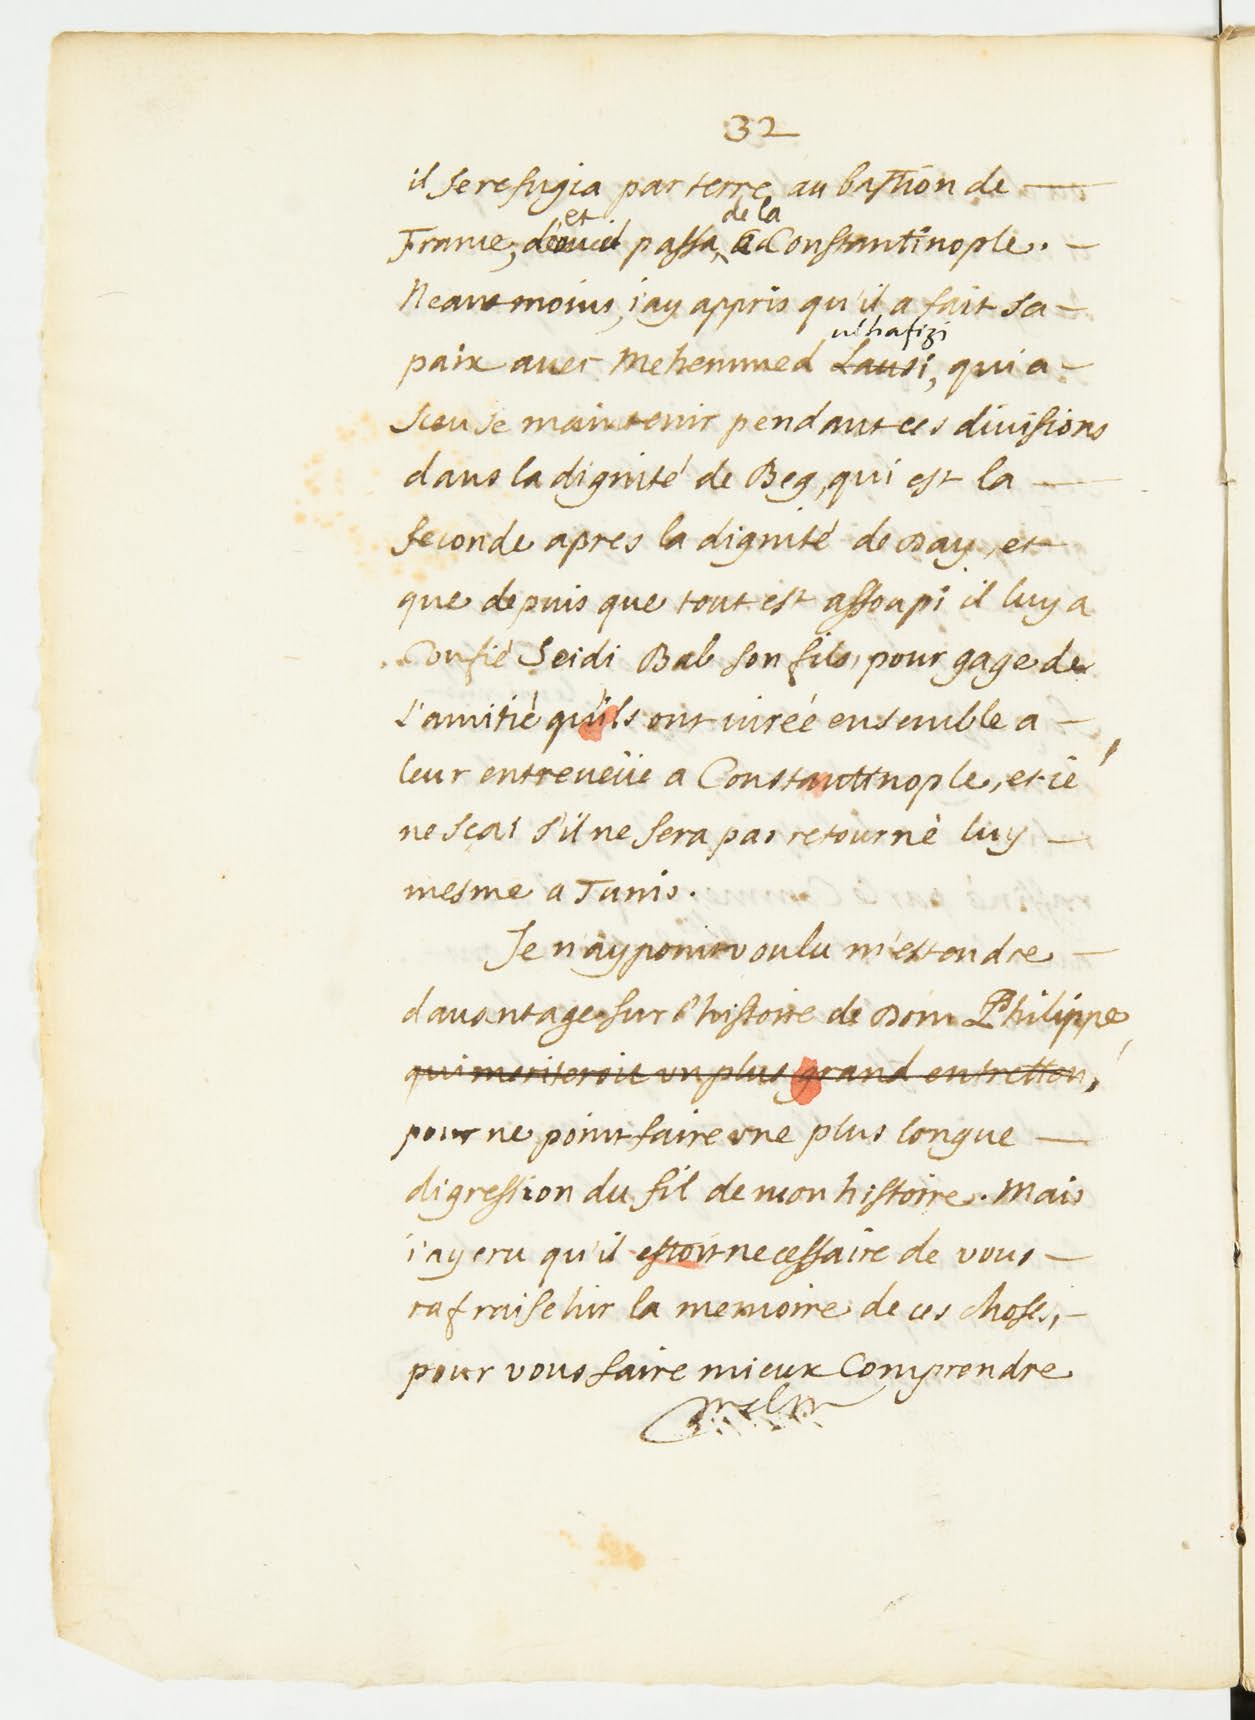 32
il se refugia par terre au bastion de
et de la
France, d'ou il passa, a Constantinople.
Neantmoins, j'ay appris qu'il a fait sa
ul hafizi
paix avec Mehemmed Lausi, qui a
sceu se maintenir pendant ces divisions
dans la dignité de Beg, qui est la
seconde apres la dignité de Day, et
que depuis que tout est assoapi il luy a
Confié Seidi Bab son fils, pour gage de
l'amitié qu'ils ont iurée ensemble a
leur entreveüe a Constantinople, et ie
ne sçai s'il ne sera pas retourné luy
mesme a Tunis.
Je n'ay point voulu m'estendre
davantage sur l'histoire de Dom Philippe,
qui meriteroit vn plus grand entretien,
pour ne point faire vne plus longue
digression du fil de mon histoire. Mais
i'ay cru qu'il estoit necessaire de vous
rafraischir la memoire de ces choses,
pour vous faire mieux Comprendre